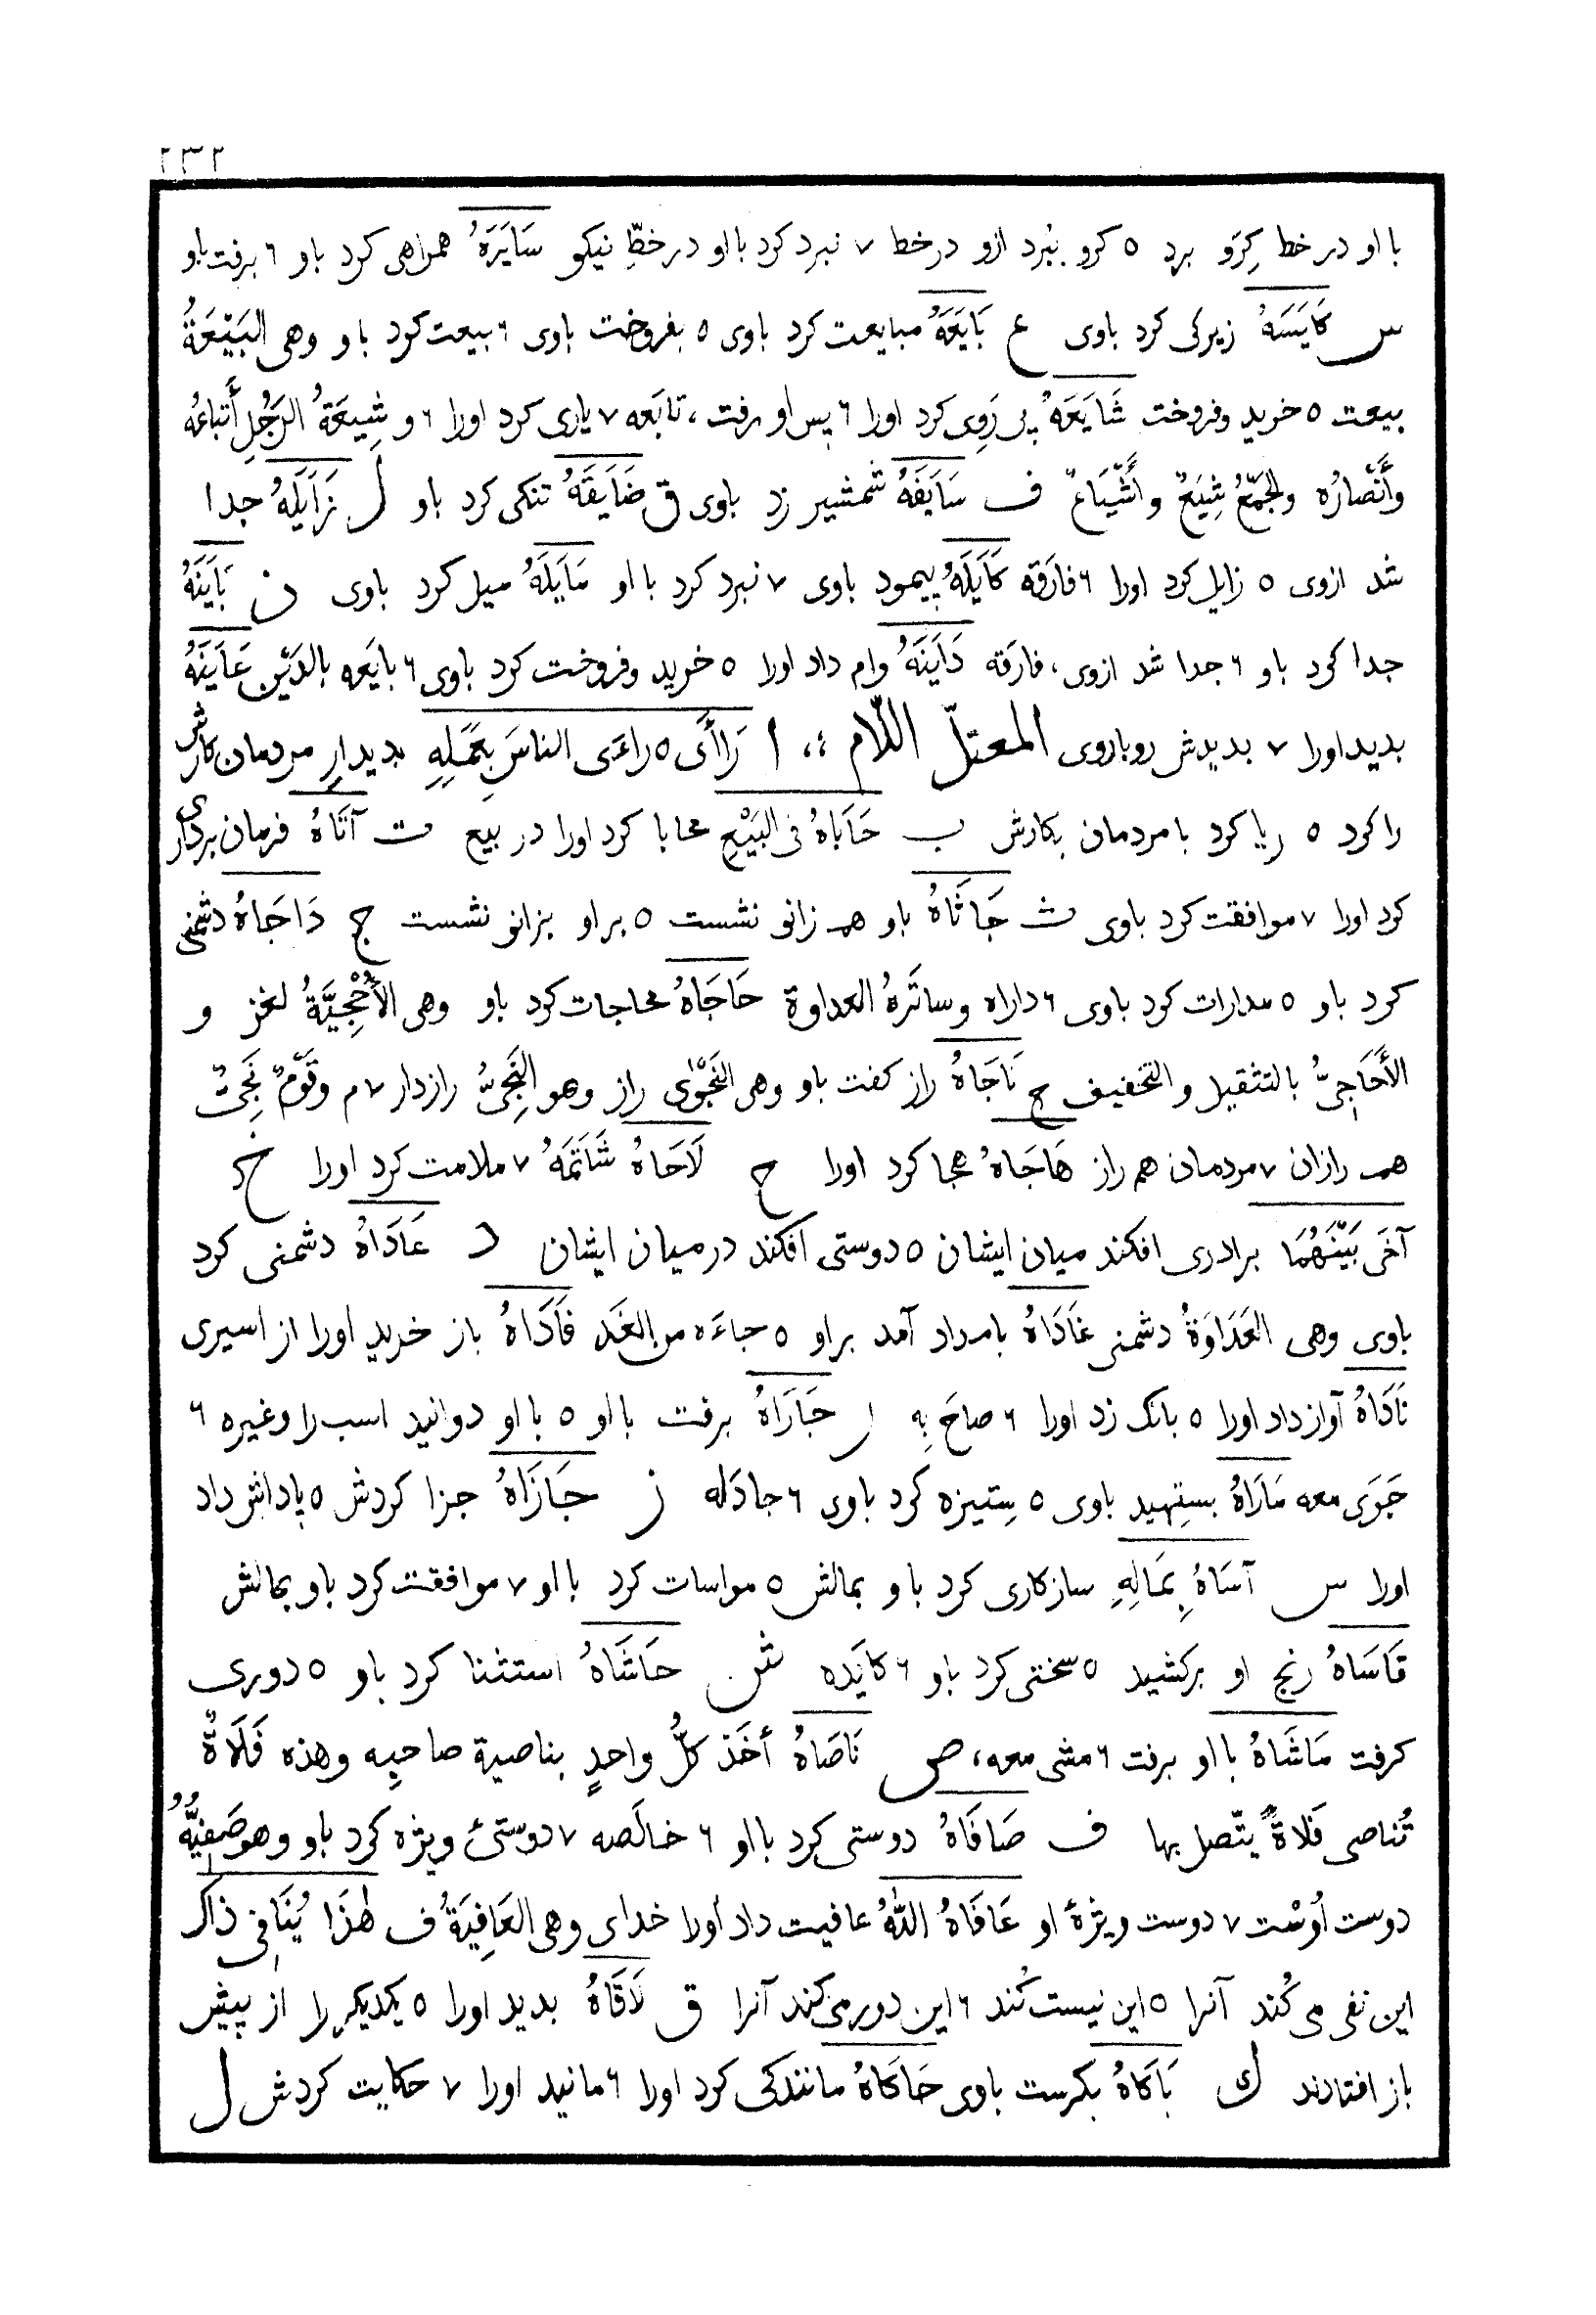 ٢٣٢
با او در خط کِرَو برد ٥ کرو ببُرد ازو در خط ٧ نبرد کرد با او در خطِّ نیکو سَایَرَهُ همراهی کرد باو ٦ برفت باو
س کَایَسَهُ زیرکی کرد باوی ع بَایَعَهُ مبایعت کرد باوی ٥ بفروخت باوی ٦ بیعت کرد باو وهی البَیْعَةُ
بیعت ٥ خرید وفروخت شَایَعَهُ پی رَوِی کرد اورا ٦ پس او برفت، تابَعه ٧ یاری کرد اورا ٦ و شِیعَةُ الرَجُلِ أتباعُه
وأَنْصارُه والجَمْعُ شِیَعٌ وأَشْیَاعٌ ف سَایَفَهُ شمشیر زد باوی ق ضَایَقَهُ تنکی کرد باو ل زَایَلَهُ جدا
شد ازوی ٥ زایل کرد اورا ٦ فارَقه کَایَلَهُ پیمود باوی ٧ نبرد کرد با او مَایَلَهُ میل کرد باوی ن بَایَنَهُ
جدا کرد باو ٦ جدا شد ازوی، فارَقه دَایَنَهُ وام داد اورا ٥ خرید وفروخت کرد باوی ٦ بایَعه بالدَیْنِ عَایَنَهُ
بدید اورا ٧ بدیدش روباروی المعتلّ اللّام ،؛ ا رَاأَی ٥ راءَی الناسَ بِعَمَلِهِ بدیدارِ مردمان کارش
را کرد ٥ ریا کرد با مردمان بکارش ب حَابَاهُ فی البَیْعِ محابا کرد اورا در بیع ت آتَاهُ فرمان برداری
کرد اورا ٧ موافقت کرد باوی ث جَاثَاهُ باو هم زانو نشست ٥ براو بزانو نشست ج دَاجَاهُ دشمنی
کرد باو ٥ مدارات کرد باوی ٦ داراه وساتَرهُ العداوة حَاجَاهُ محاجات کرد باو وهی الأُحْجِیَّةُ لغز و
الأَحَاجِیُّ بالتثقیل والتخفیف ج نَاجَاهُ راز کفت باو وهی النَجْوَی راز وهو النَجِیُّ رازدار ٧ م وقَوْمٌ نَجِیٌّ
هم رازان ٧ مردمان هم راز هَاجَاهُ هجا کرد اورا ح لَاحَاهُ شَاتَمَهُ ٧ ملامت کرد اورا خ
آخَی بَیْنَهُمَا برادری افکند میان ایشان ٥ دوستی افکند در میان ایشان د عَادَاهُ دشمنی کرد
باوی وهی العَدَاوَةُ دشمنی غَادَاهُ بامداد آمد براو ٥ جاءَه من الغَد فَادَاهُ باز خرید اورا از اسیری
نَادَاهُ آواز داد اورا ٥ بانک زد اورا ٦ صاحَ بِه ر جَارَاهُ برفت با او ٥ با او دوانید اسب را وغیره ٦
جَرَی معه مَارَاهُ بستِهید باوی ٥ سِتیزه کرد باوی ٦ جادَله ز جَازَاهُ جزا کردش ٥ پاداش داد
اورا س آسَاهُ بِمَالِهِ سازکاری کرد باو بمالش ٥ مواسات کرد با او ٧ موافقت کرد باو بمالش
قَاسَاهُ رنج او برکشید ٥ سختی کرد باو ٦ کایَده ش حَاشَاهُ استثنا کرد باو ٥ دوری
کرفت مَاشَاهُ با او برفت ٦ مشی معه، ص نَاصَاهُ أخَذ کلُّ واحدٍ بناصیة صاحبِه وهذه فَلَاةٌ
تُناصی فَلاةً یتّصل بها ف صَافَاهُ دوستی کرد با او ٦ خالَصه ٧ دوستیٔ ویژه کرد باو وهو صَفِیُّهُ
دوست اُوسْت ٧ دوست ویژهٔ او عَافَاهُ اللّهُ عافیت داد اورا خدای وهی العَافِیَةُ ف هٰذَا یُنَافِی ذاک
این نفی می کُند آنرا ٥ این نیست کُند ٦ این دور می کند آنرا ق لَاقَاهُ بدید اورا ٥ یکدیکر را از پیش
باز افتادند ک بَاکَاهُ بکرست باوی حَاکَاهُ مانندکی کرد اورا ٦ مانید اورا ٧ حکایت کردش ل